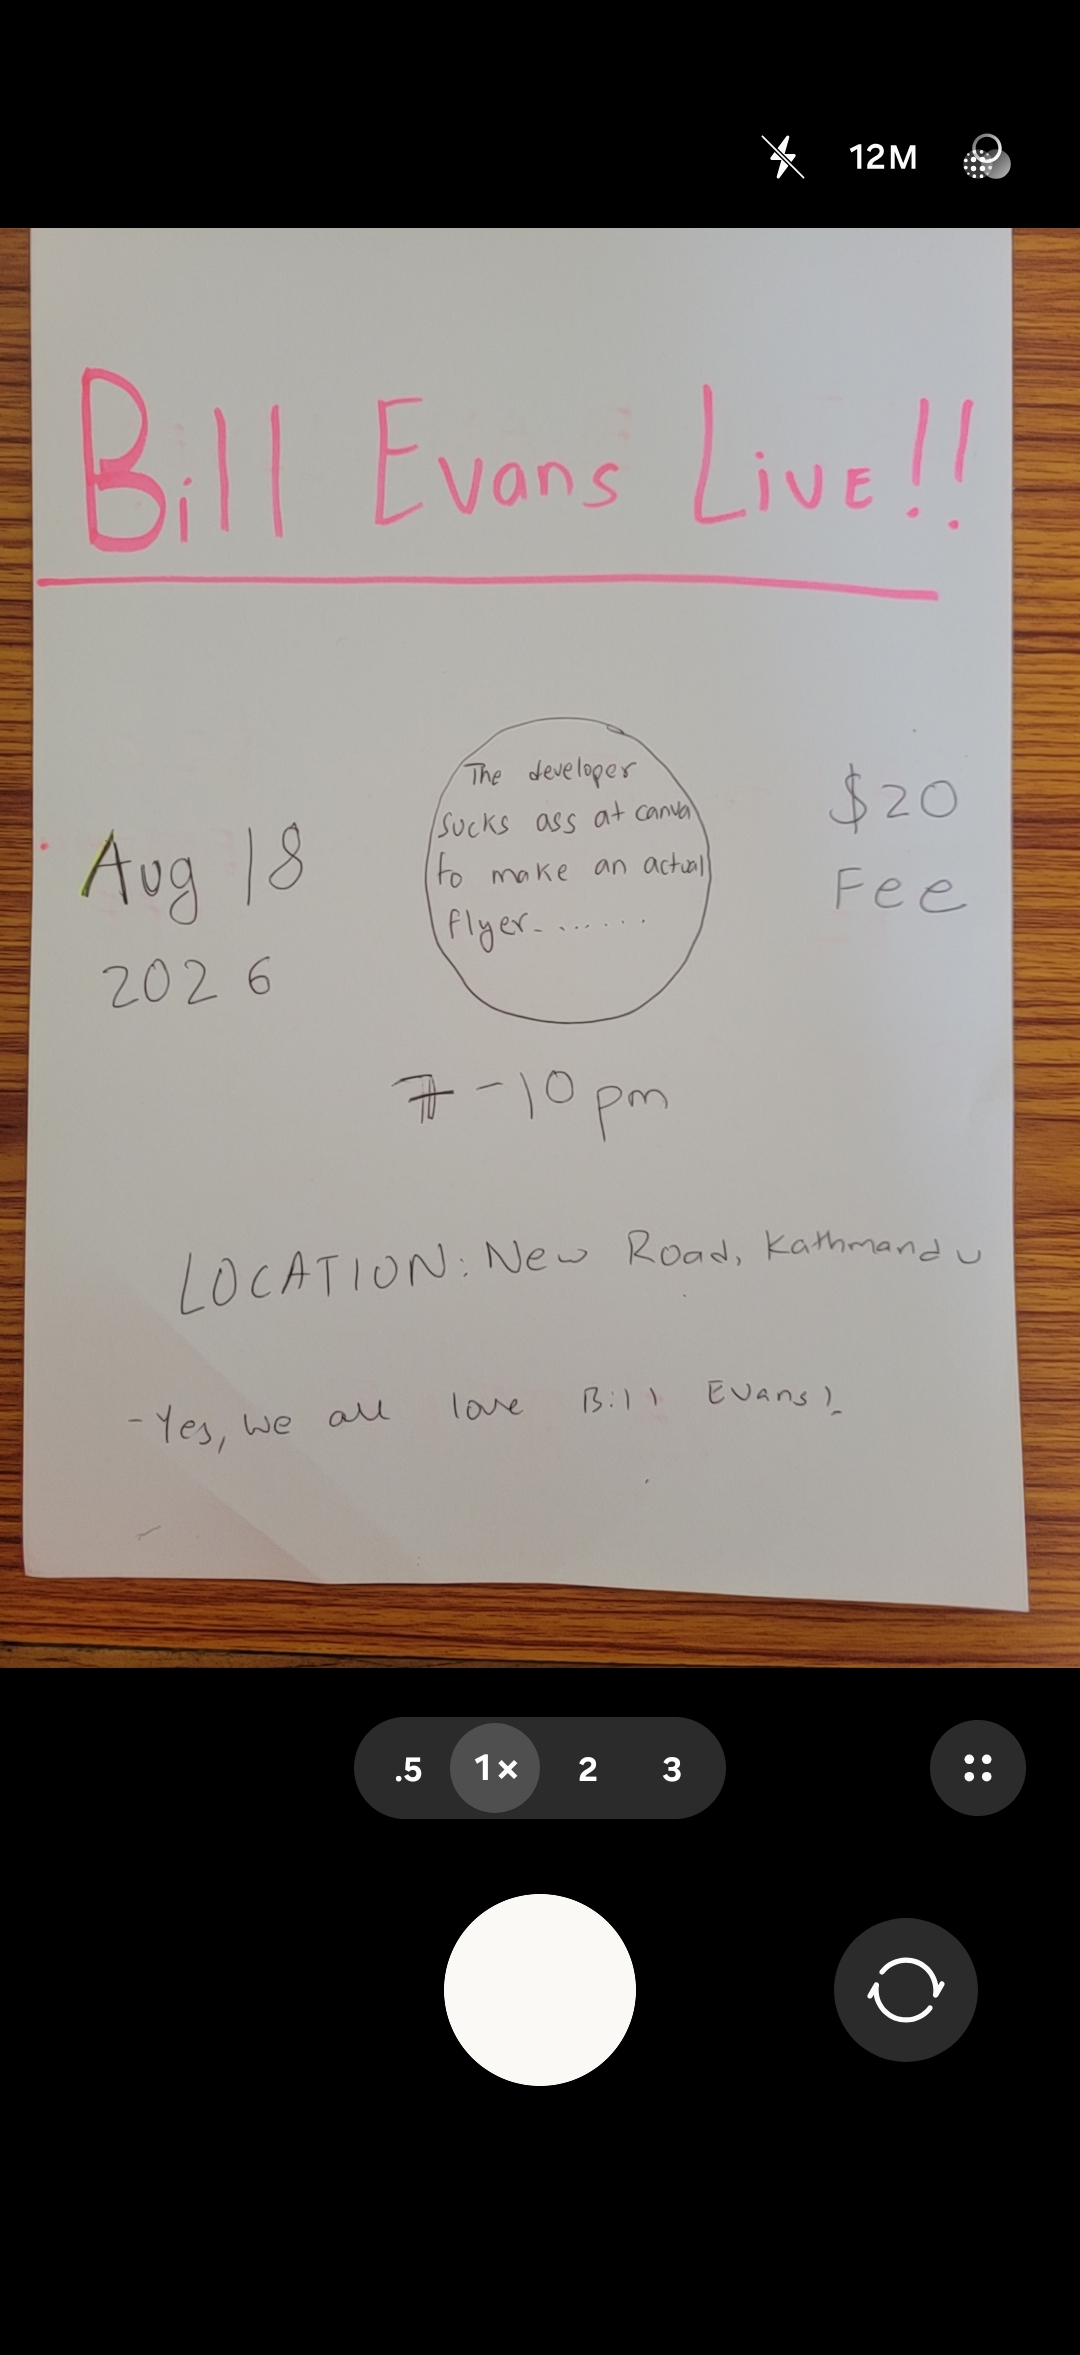 12M
Bill Evans LivE!!
The developer
sucks ass at canva
to make an actual
flyer.......
Aug 18
2026
$20
Fee
7-10 pm
LOCATION: New Road, Kathmandu
-Yes, we all love Bill Evans!
.5 1× 2 3